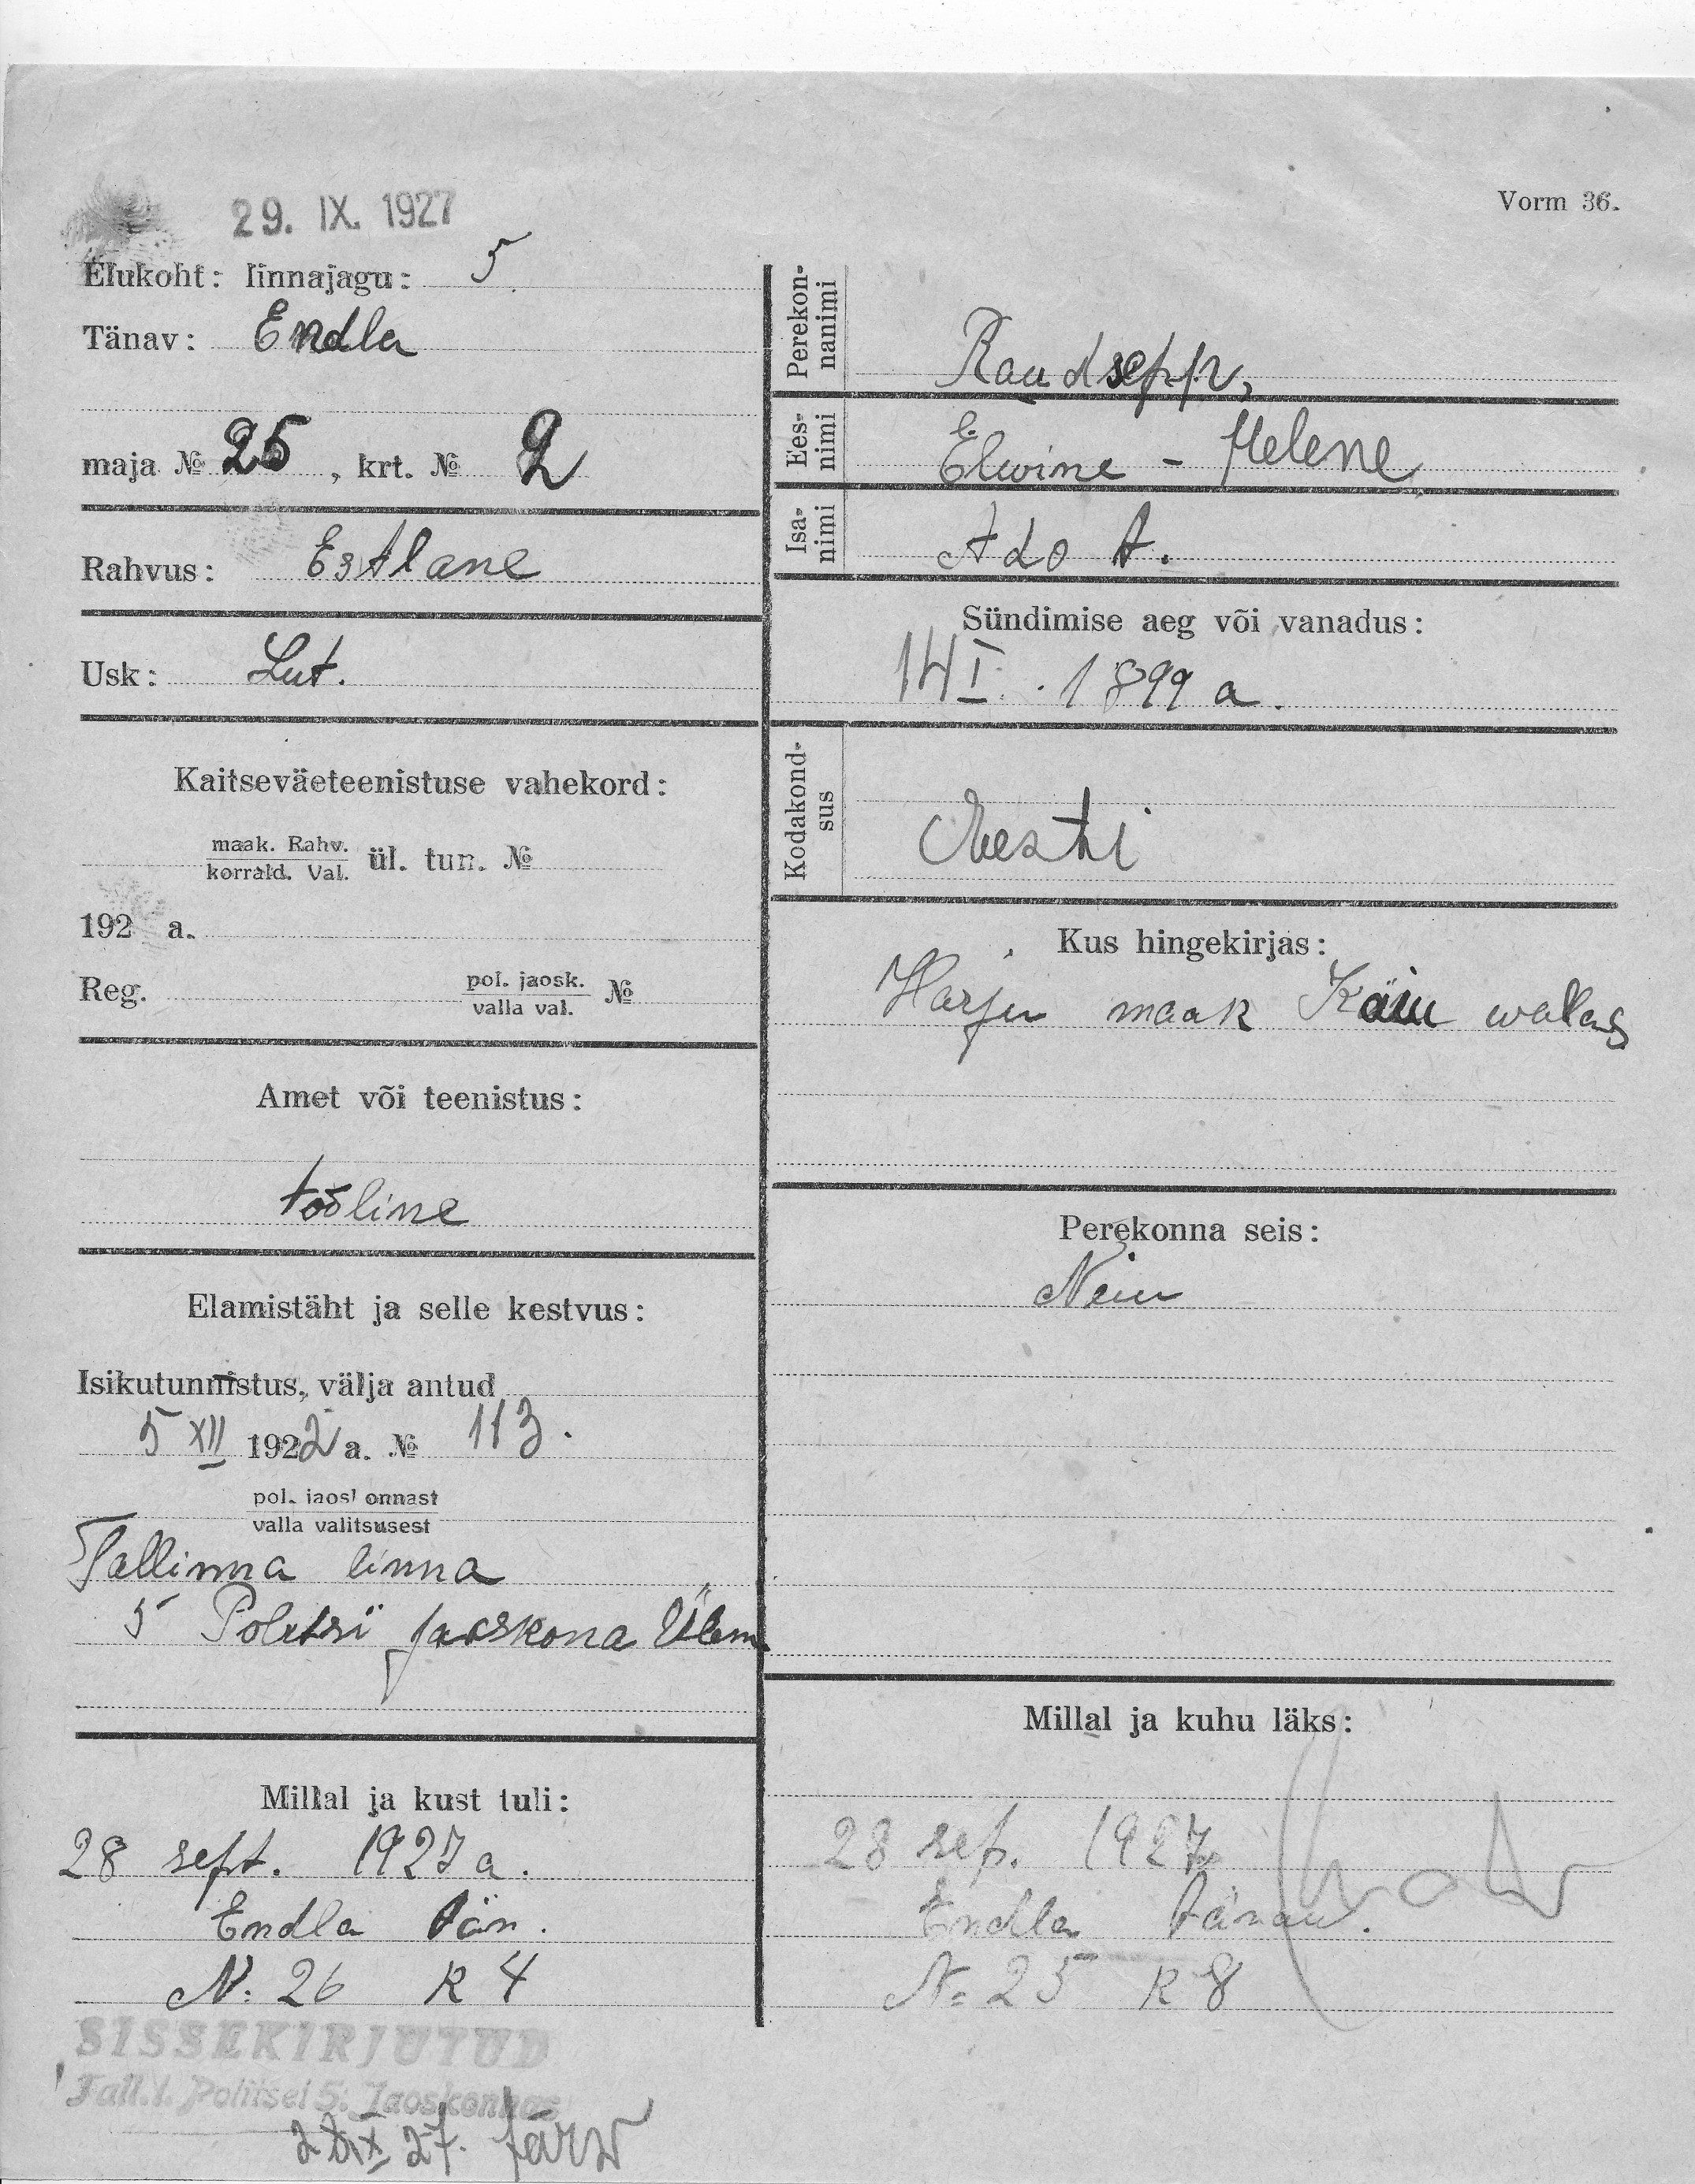 29. IX. 1927
Vorm 36.
Elukoht: linnajagu: 5
Tänav: Endla
maja № 25, krt. № 2
Rahvus: Estlane
Usk: Lut.
Kaitseväeteenistuse vahekord:
maak. Rahv.
korrald. Val. ül. tun. №
192 a.
Reg. pol. jaosk.
valla val. №
Amet või teenistus:
tööline
Elamistäht ja selle kestvus:
Isikutunnistus, välja antud
5 XII 1922 a. № 113.
pol. jaoskonnast
valla valitsusest
Tallinna linna
5 Politsi jaoskona Ülem
Millal ja kust tuli:
28 sept. 1927 a.
Endla tän.
N: 26 K 4
SISSEKIRJUTUD
Tall. l. Politsei 5. Jaoskonnas
Perekonnanimi
Raudsepp,
Eesnimi
Elwine - Helene
Isanimi
Ado t.
Sündimise aeg või vanadus:
14 I. 1899 a.
Kodakondsus
Eesti
Kus hingekirjas:
Harju maak Käru wallas
Perekonna seis:
Neiu
Millal ja kuhu läks:
28 sep. 1927
Endla tänaw.
N= 25 K 8